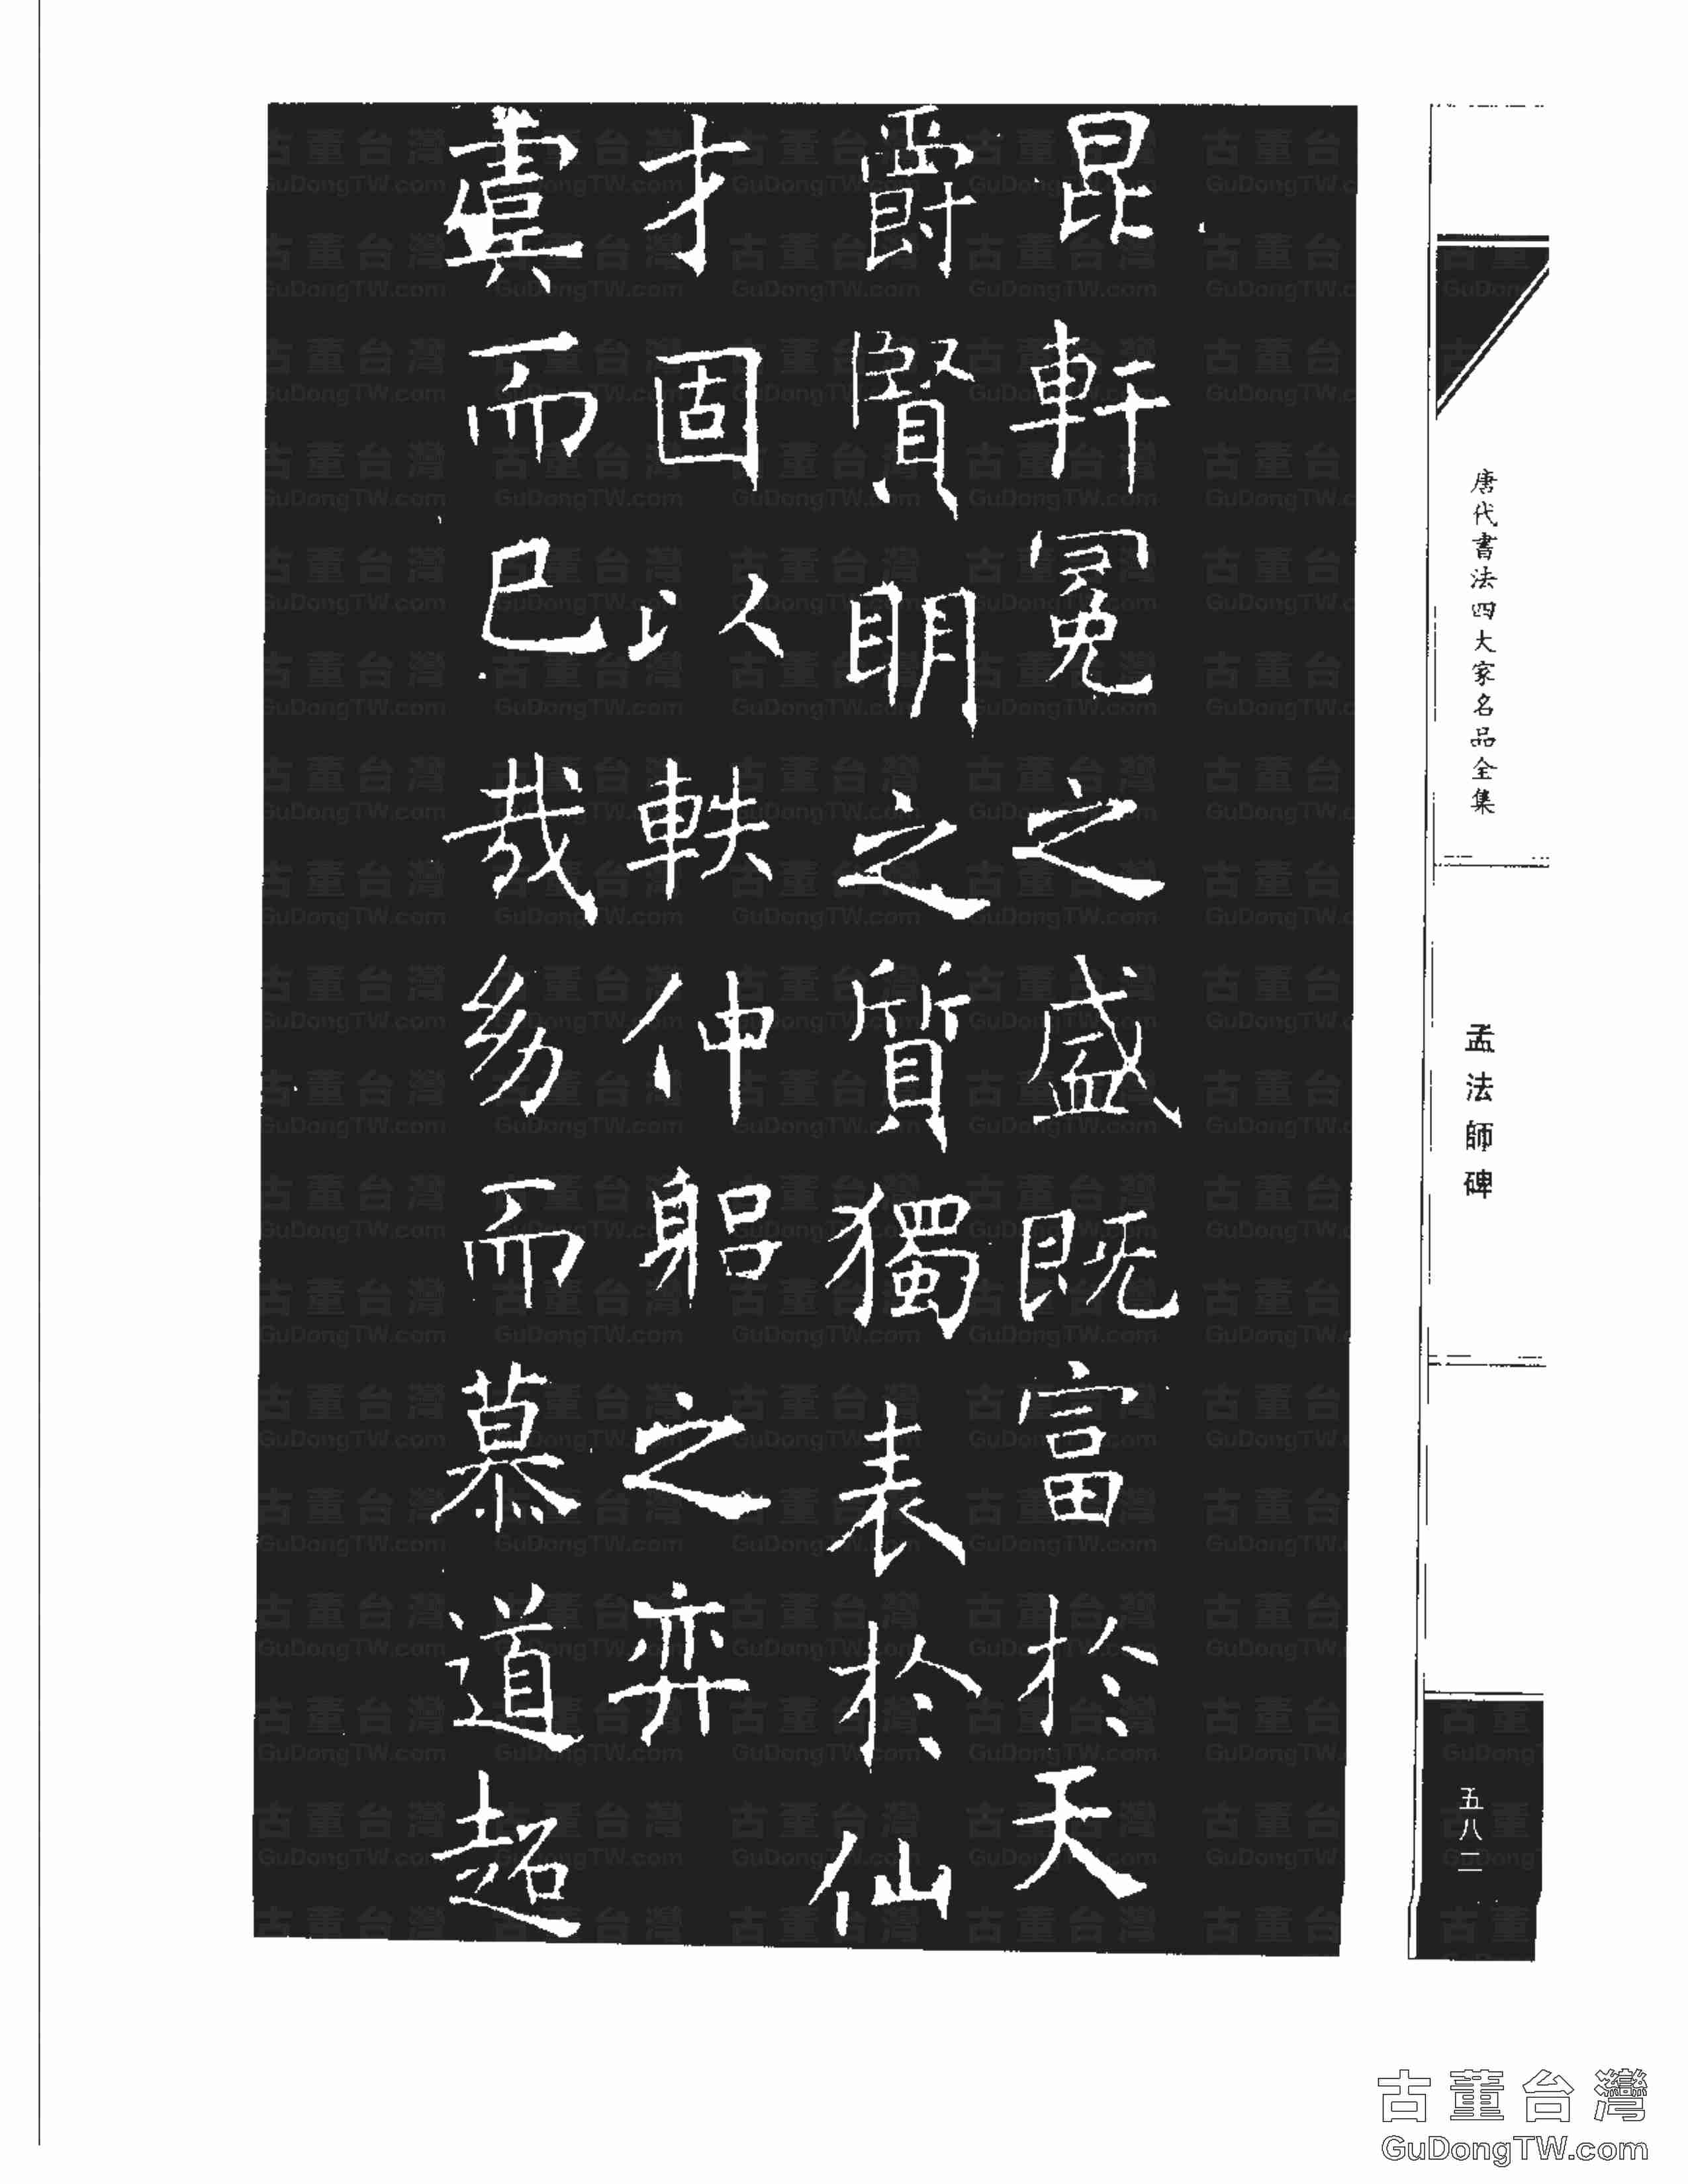 唐代書法四大家名品全集
孟法師碑
五八二
昆軒冕之盛既富於天
爵賢明之質獨表於仙
才固以軼仲躬之弈
虞而已哉幼而慕道超
古董台灣
GuDongTW.com